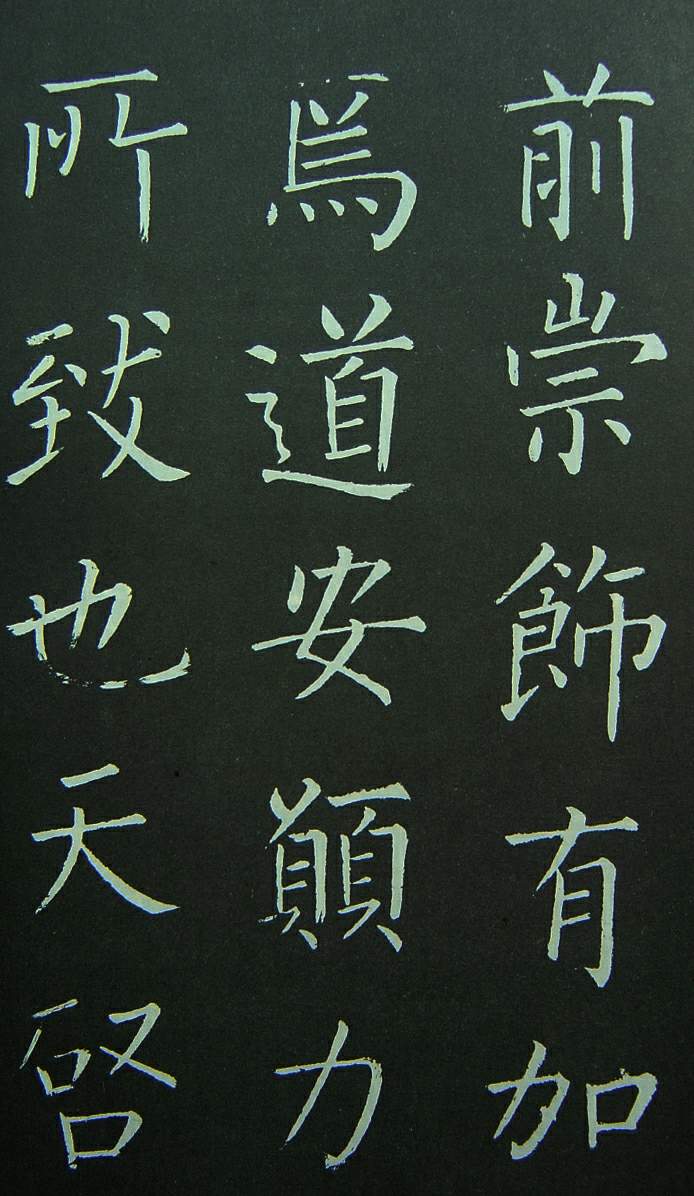 前崇飾有加
焉道安顛力
所致也天啓